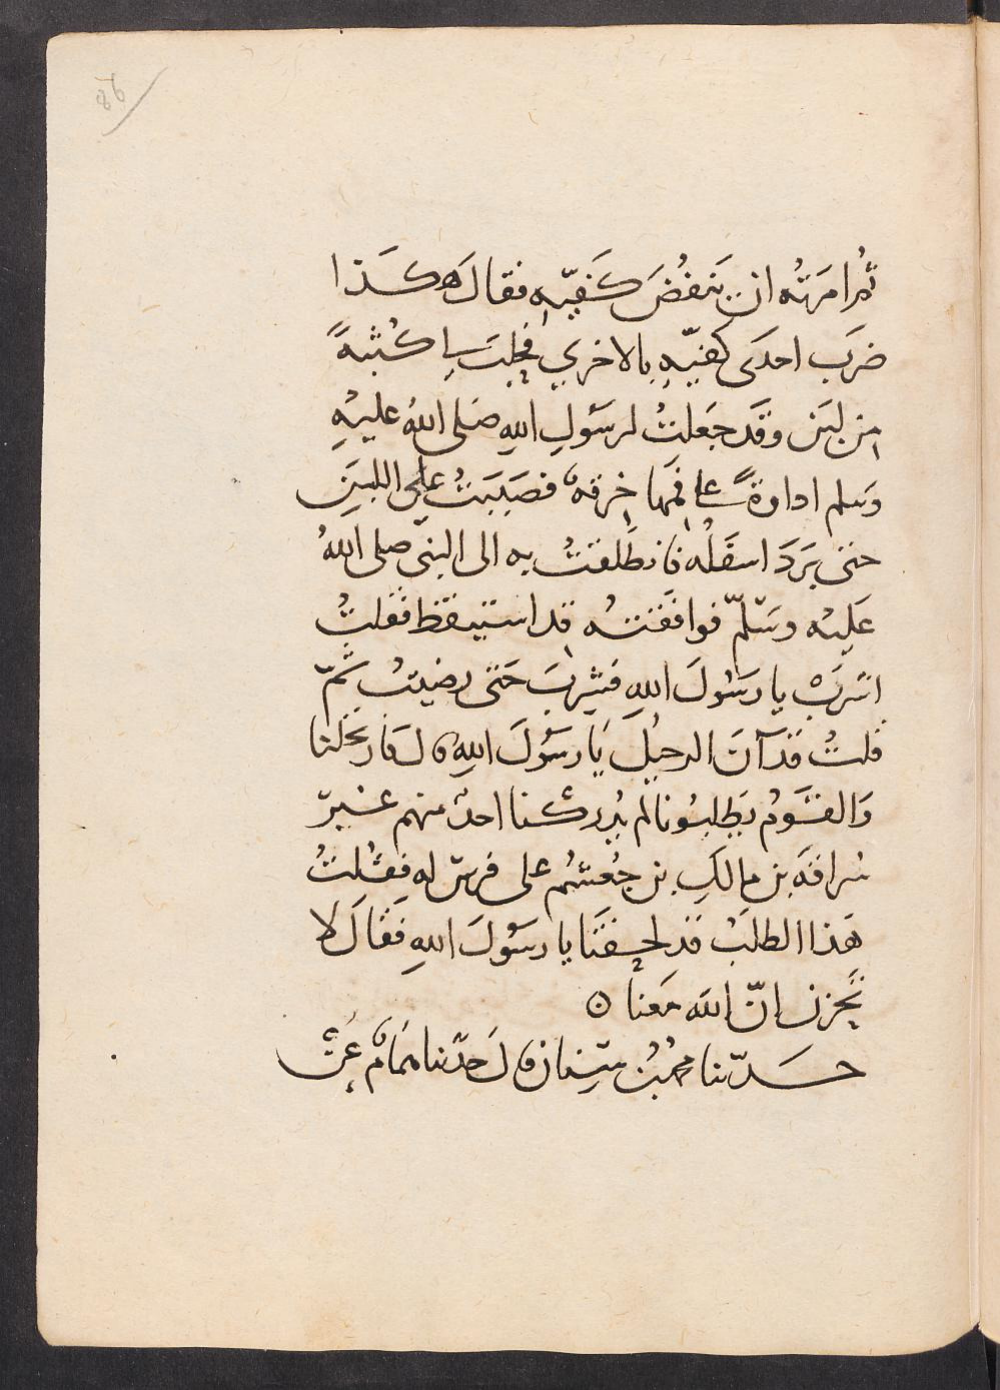 86
ثُمّ امَرتُه ان يَنفُضَ كَفّيهِ فقالَ هكَذا
ضرَب احدَى كفّيهِ بالاخري فحلبَ لي كُثبةً
من لبَن وقَد جَعلتُ لرسَولِ اللهِ صَلى اللهُ عليهِ
وَسلم اداوةً على فمها خرقةٌ فصَبَبَتُ على اللبَنِ
حتى برَدَ اسفَلُه فانطَلقتُ به الى النبيّ صلى اللهُ
عَليْه وسَلّمّ فوافَقتُه قد استيقظ فقلتُ
اشرَبْ يا رسَولَ اللهِ فشربَ حَتى رضيتُ ثمّ
قلتُ قَد آنَ الرحيلَ يَا رسَولَ اللهِ قالَ فارتحَلنا
وَالقَومُ يَطلبُونا لم يُدركنا احدٌ منهم غيرّ
سُراقةَ بن مالكِ بن جُعشُم على فرسٍ له فقُلتُ
هَذا الطلَبُ قد لحقَنَا يا رسَولَ اللهِ فقَالَ لا
تَحزن انّ اللهَ مَعنا ه
حَدّثنا محمدُ بنُ سِنان قالَ حدّثنا همَامٌ عَنْ